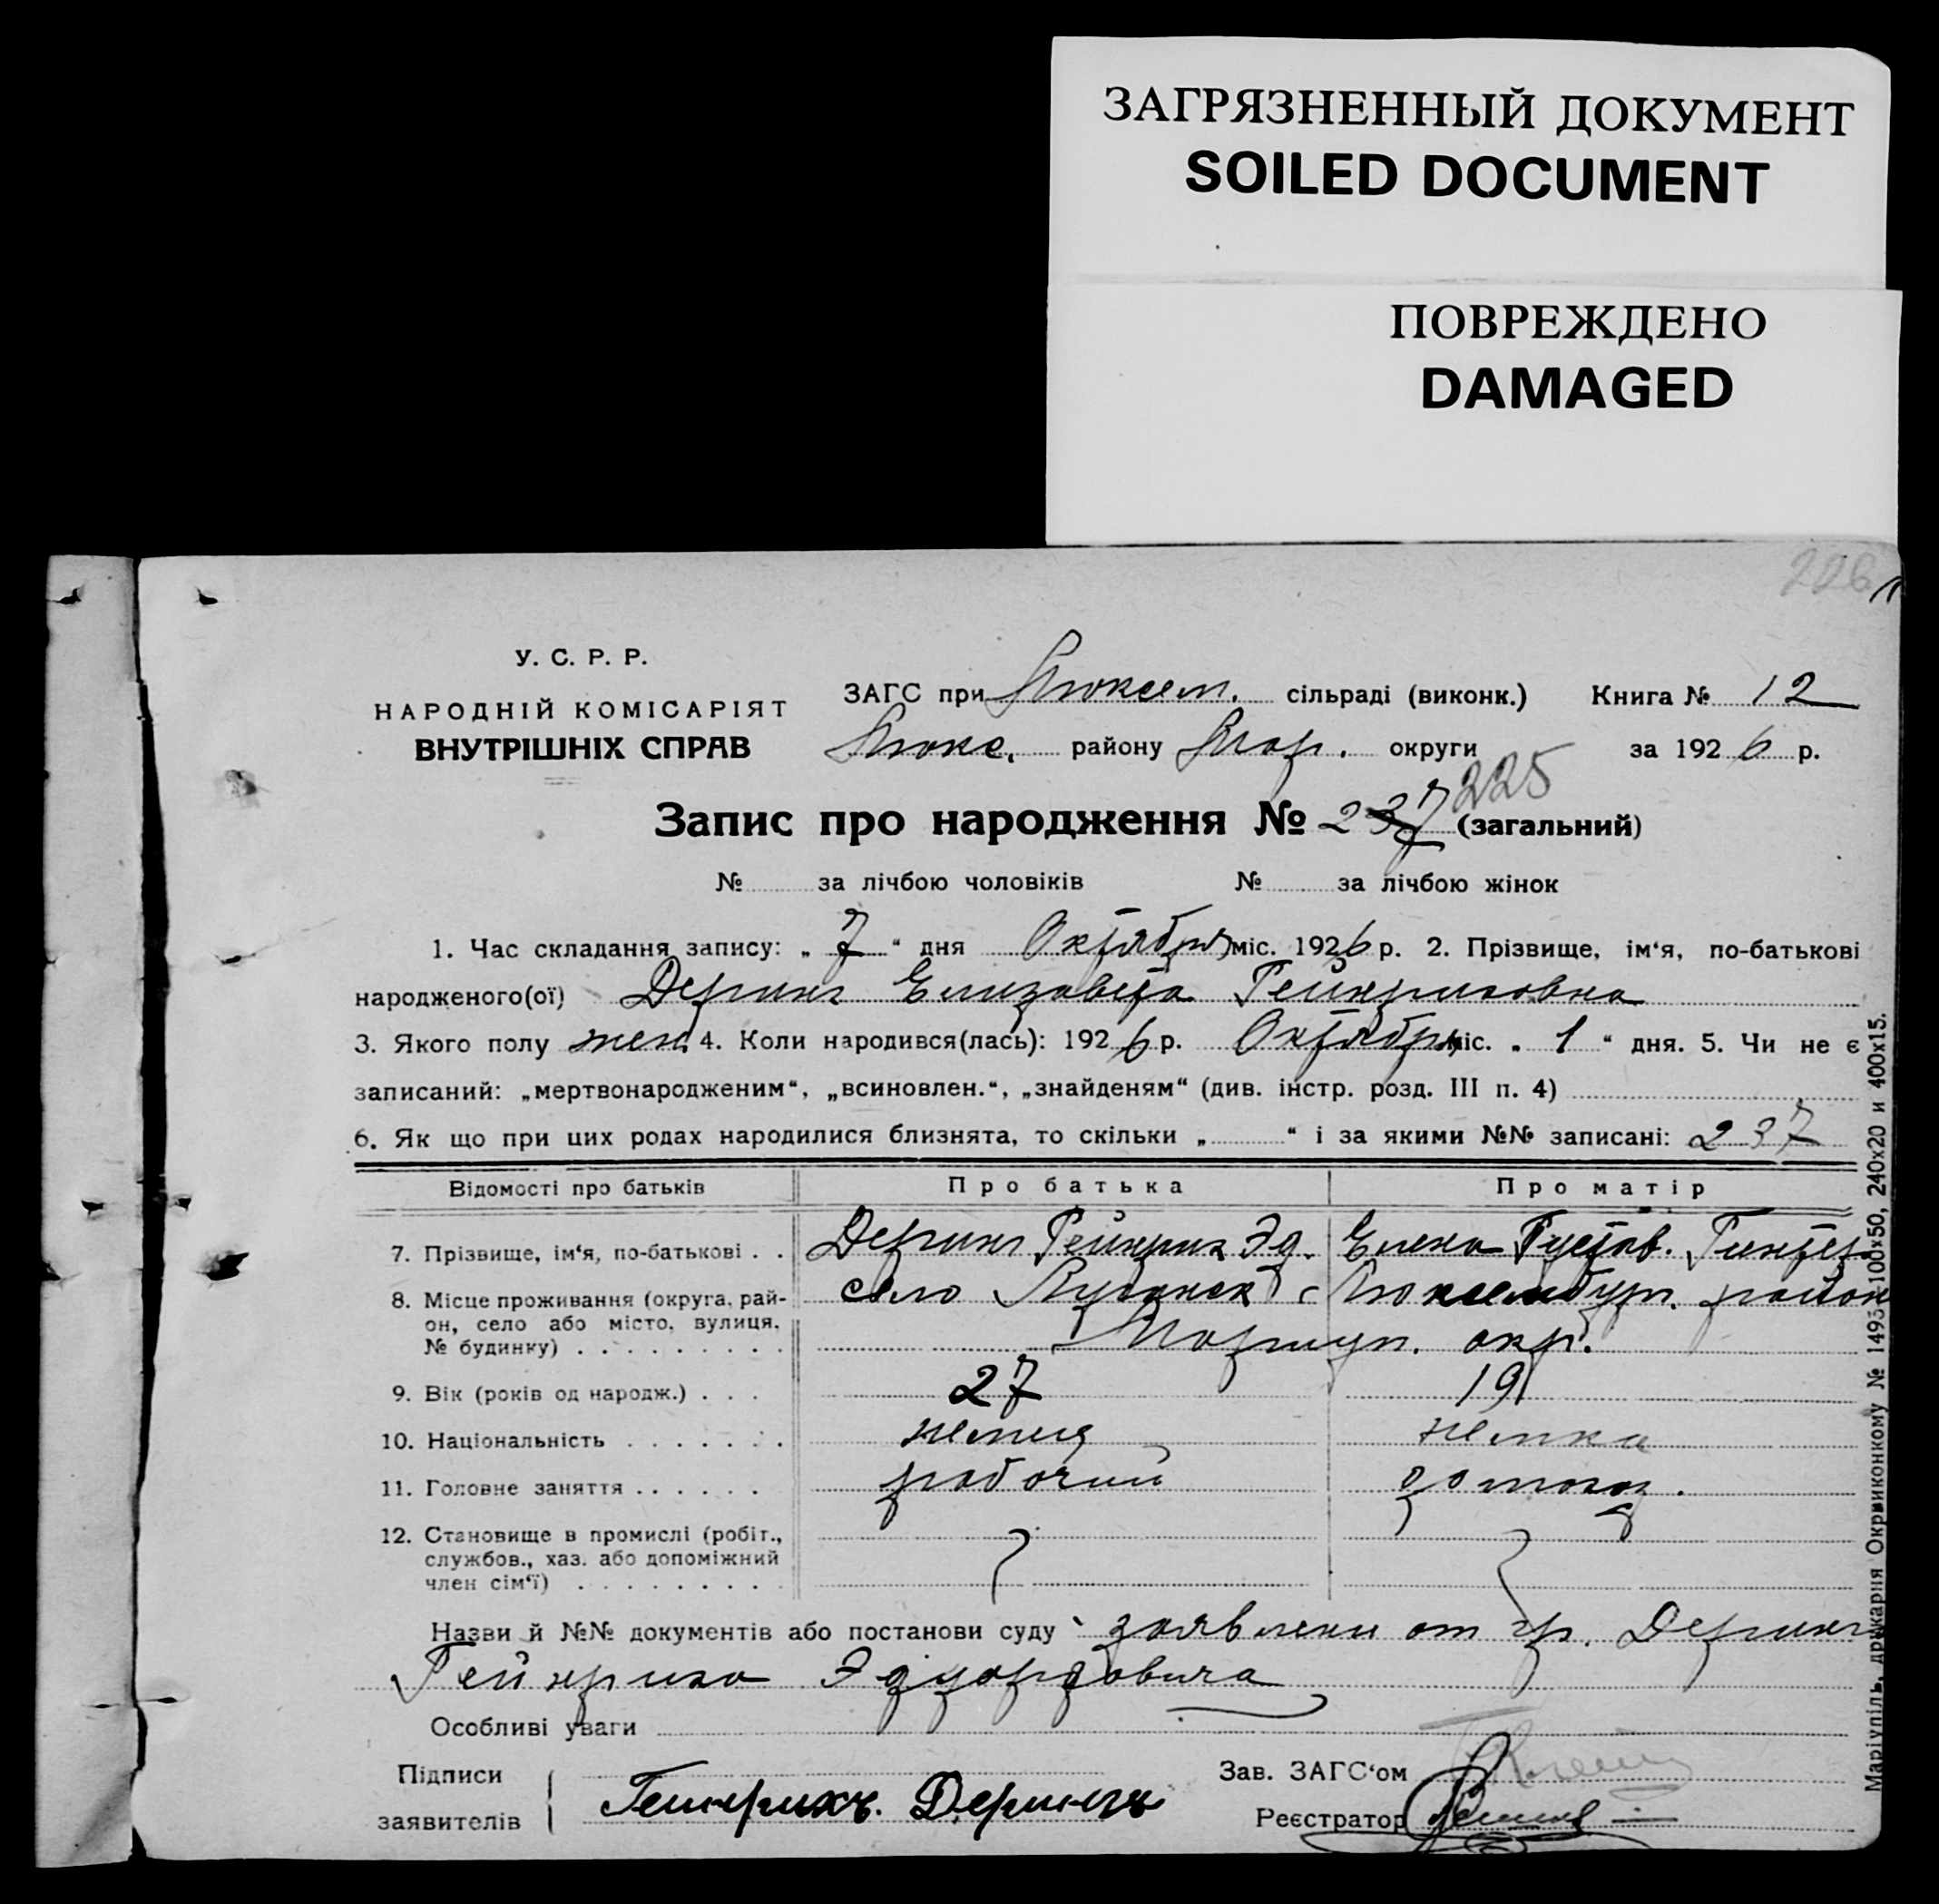 ЗАГРЯЗНЕННЫЙ ДОКУМЕНТ
SOILED DOCUMENT
ПОВРЕЖДЕНО
DAMAGED
226
У. С. Р. Р.
НАРОДНІЙ КОМІСАРІЯТ
ВНУТРІШНІХ СПРАВ
ЗАГС при Люксем. сільраді (виконк.) Книга № 12
Люкс. району Мар. округи за 1926 р.
225
Запис про народження № 237 (загальний)
№ за лічбою чоловіків № за лічбою жінок
1. Час складання запису: „ 7 “ дня Октября міс. 1926 р. 2. Прізвище, ім‘я, по-батькові
народженого(ої) Деринг Елизавета Гейнриховна
3. Якого полу жен. 4. Коли народився(лась): 1926 р. Октября міс. „ 1 “ дня. 5. Чи не є
записаний: „мертвонародженим“, „всиновлен.“, „знайденям“ (див. інстр. розд. III п. 4)
6. Як що при цих родах народилися близнята, то скільки „ “ і за якими №№ записані: 237
Відомості про батьків Про батька Про матір
7. Прізвище, ім‘я, по-батькові . . Деринг Гейнрих Эд. Елена Густав. Гинтер
8. Місце проживання (округа, рай-
он, село або місто, вулиця,
№ будинку)
село Люксембург. район
Мариуп. окр.
9. Вік (років од народж.) . . . 27 19
10. Національність немец немка
11. Головне заняття рабочий домохоз.
12. Становище в промислі (робіт.,
службов., хаз. або допоміжний
член сім‘ї)
Назви й №№ документів або постанови суду заявлени от гр. Деринг
Гейнриха Эдуардовича
Особливі уваги
Підписи
заявителів
Гейнрихъ. Дерингъ
Зав. ЗАГС‘ом
Реєстратор
Маріупіль, друкарня Окрвиконкому № 1493–100×50, 240×20 и 400×15.